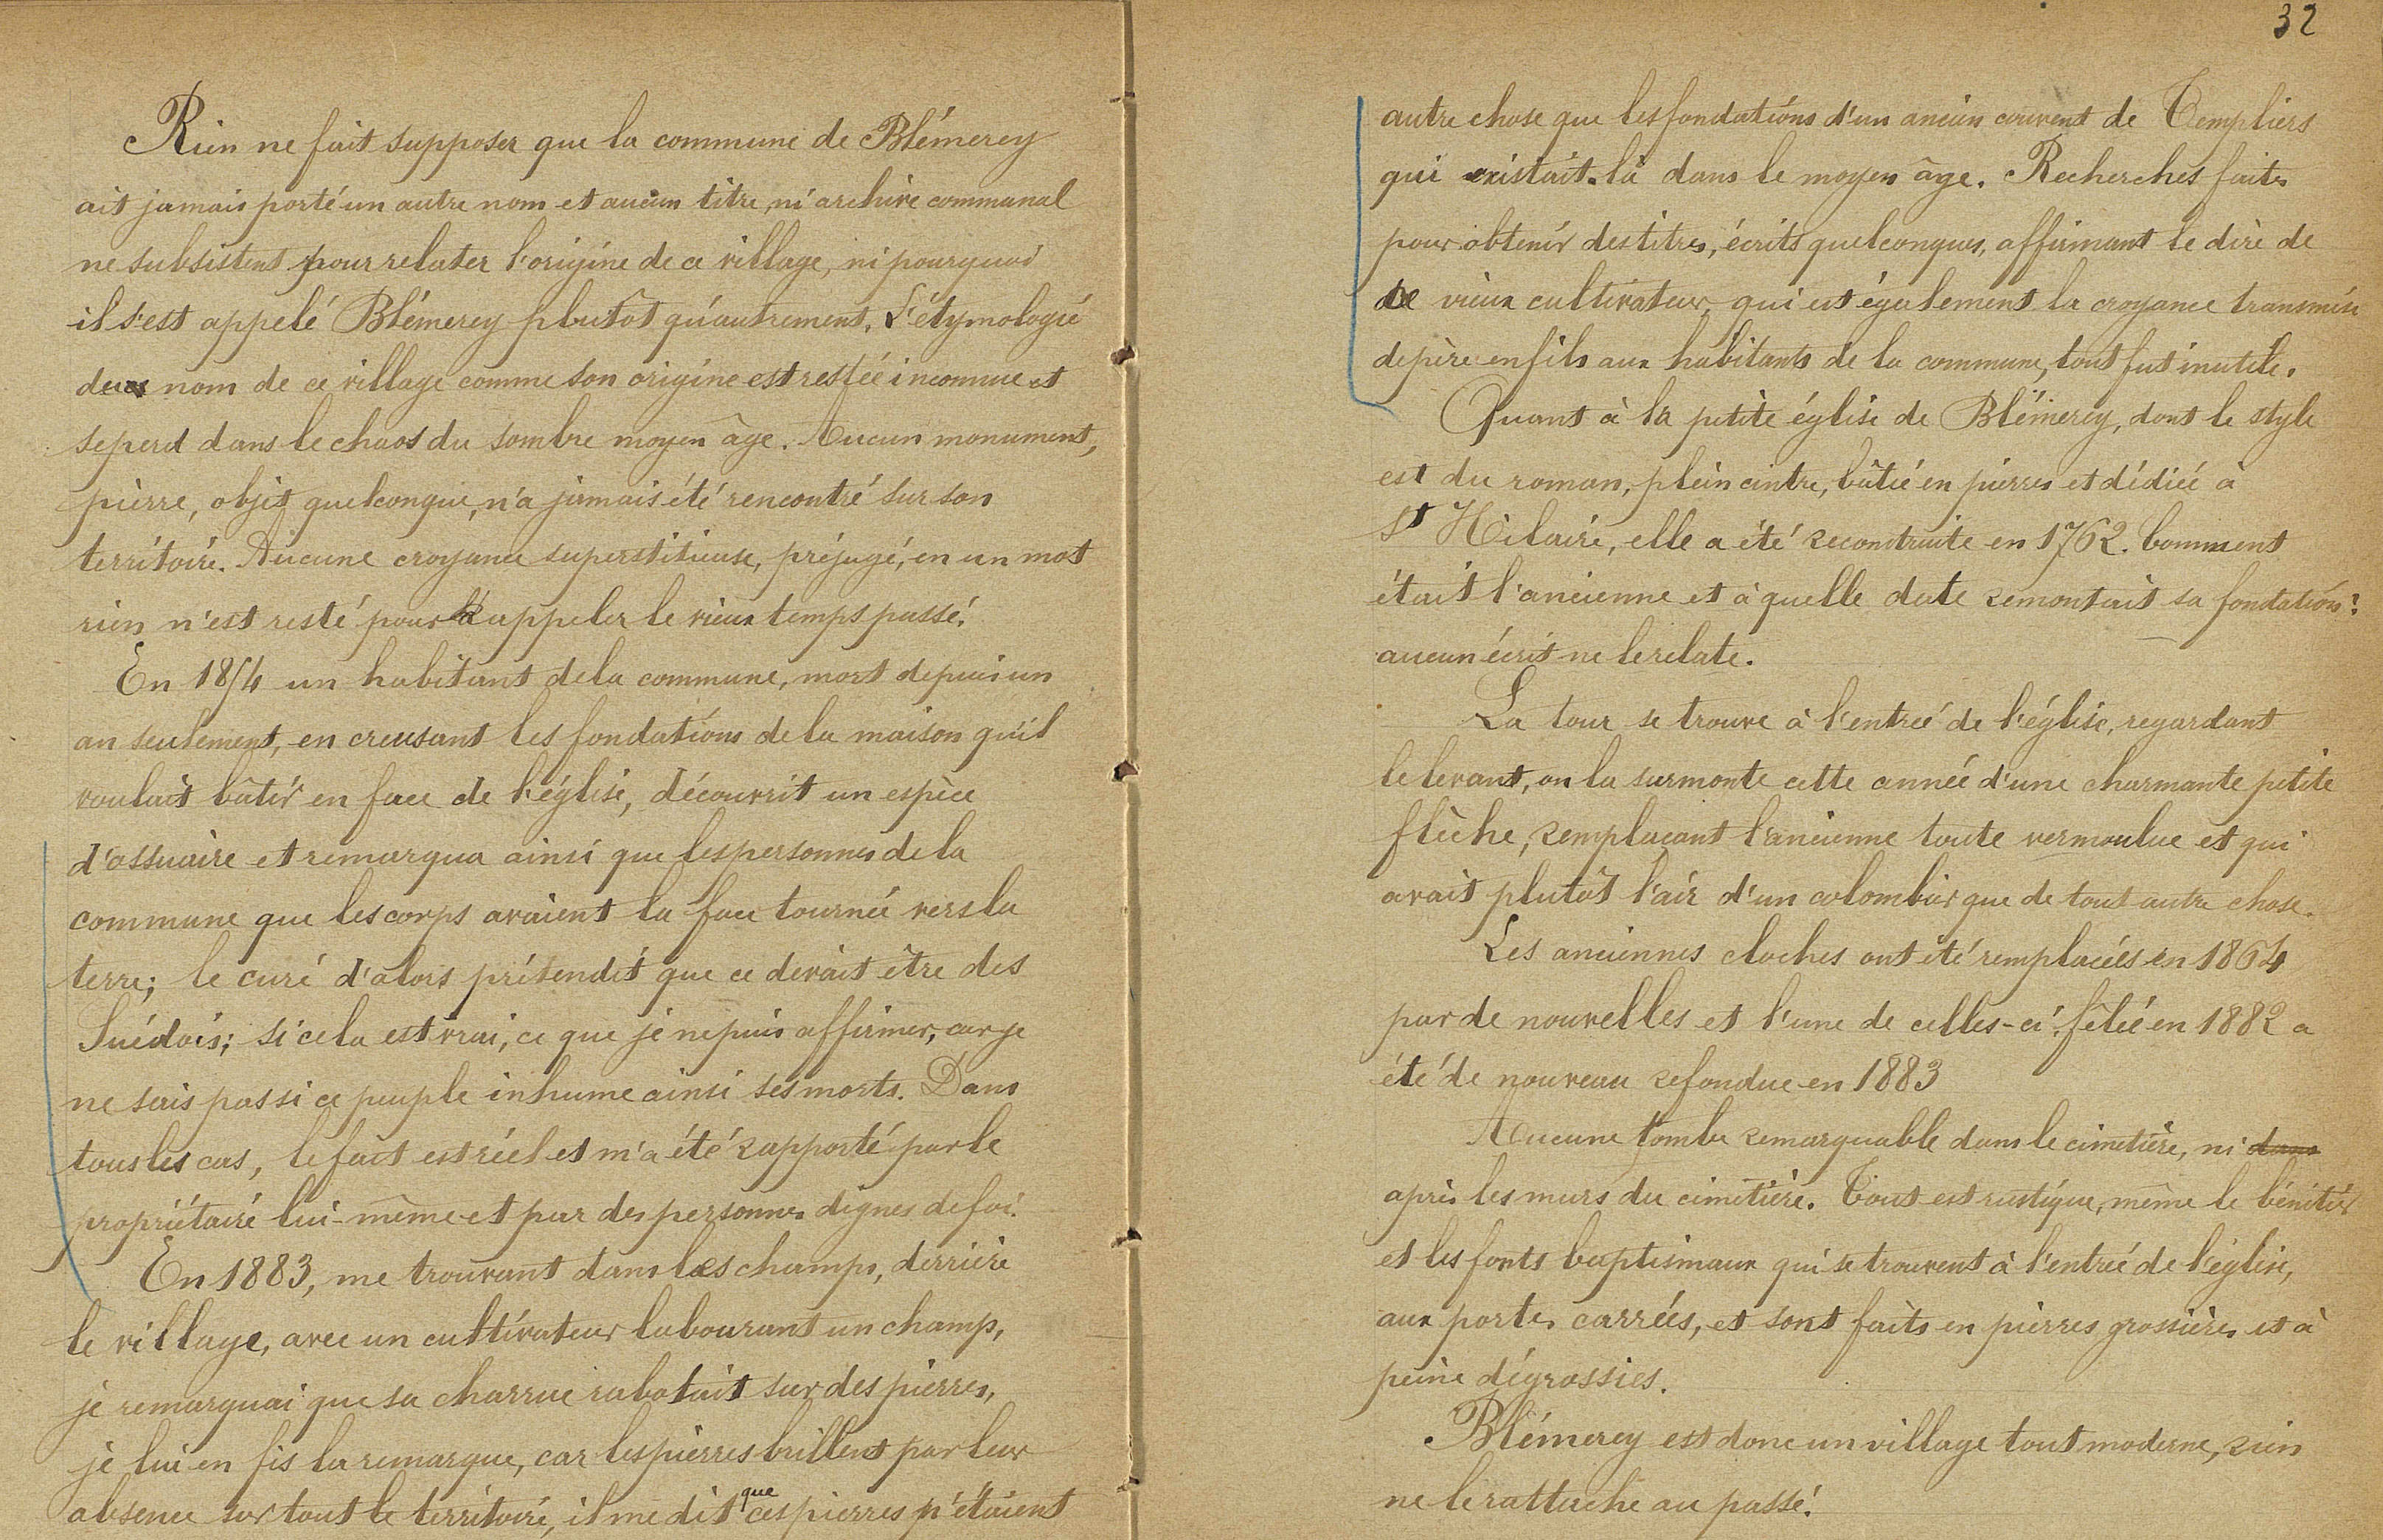 Rien ne fait supposer que la commune de Blémerey
ait jamais porté un autre nom et aucun titre, ni archive communal
ne subsistent pour relater l'origine de ce village, ni pourquoi
il s'est appelé Blémerey plutôt qu'autrement. L'étymologie
du nom de ce village comme son origine est restée inconnue et
se perd dans le chaos du sombre moyen âge. Aucun monument,
pierre, objet quelconque, n'a jamais été rencontré sur son
territoire. Aucune croyance superstitieuse, préjugé, en un mot
rien n'est resté pour rappeler le vieux temps passé.
En 1854 un habitant de la commune, mort depuis un
an seulement, en creusant les fondations de la maison qu'il
voulait bâtir en face de l'église, découvrit un espèce
d'ossuaire et remarqua ainsi que les personnes de la
commune que les corps avaient la face tournée vers la
terre; le curé d'alors prétendit que ce devait être des
Suédois; si cela est vrai, ce que je ne puis affirmer, car je
ne sais pas si ce peuple inhume ainsi ses morts. Dans
tous les cas, le fait est réel et m'a été rapporté par le
propriétaire lui-même et par des personnes dignes de foi.
En 1883, me trouvant dans les champs, derrière
le village, avec un cultivateur labourant un champ,
je remarquai que sa charrue rabotait sur des pierres,
je lui en fis la remarque, car les pierres brillent par leur
absence sur tout le territoire, il me dit que ces pierres n'étaient
32
autre chose que les fondations d'un ancien couvent de Templiers
qui existait là dans le moyen âge. Recherches faites
pour obtenir des titres, écrits quelconques, affirmant le dire de
ce vieux cultivateur, qui est également la croyance transmise
de père en fils aux habitants de la commune, tout fut inutile.
Quant à la petite église de Blémerey, dont le style
est du roman, plein cintre, bâtie en pierres et dédiée à
St Hilaire, elle a été reconstruite en 1762. Comment
était l'ancienne et à quelle date remontait sa fondation?
aucun écrit ne le relate.
La tour se trouve à l'entrée de l'église, regardant
le levant, on la surmonte cette année d'une charmante petite
flèche, remplaçant l'ancienne toute vermoulue et qui
avait plutôt l'air d'un colombier que de tout autre chose.
Les anciennes cloches ont été remplacées en 1864
par de nouvelles et l'une de celles-ci fêlée en 1882 a
été de nouveau refondue en 1883
Aucune tombe remarquable dans le cimetière, ni dans
après les murs du cimetière. Tout est rustique, même le bénitier
et les fonts baptismaux qui se trouvent à l'entrée de l'église,
aux portes carrées, et sont faits en pierres grossières et à
peine dégrossies.
Blémerey est donc un village tout moderne, rien
ne le rattache au passé.